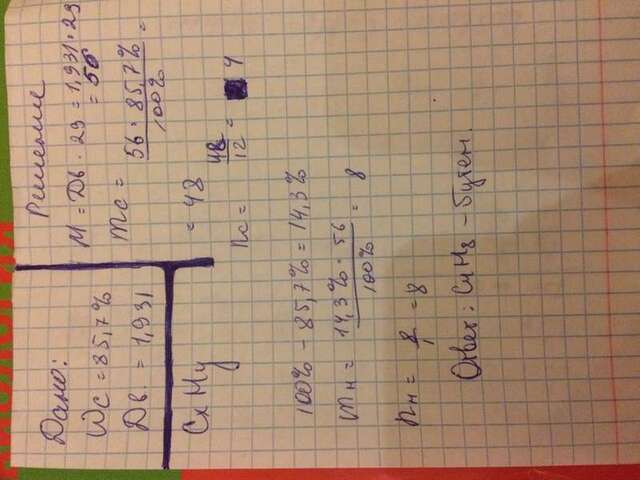 БИОЛОГИЯ
Дано:
Wc = 85,7%
Дв. = 1,931
CxHy
Решение
M = Дв · 29 = 1,931 · 29
= 56
mc =
56 · 85,7%
100%
=
= 48
nc = 48/12 = 4
100% - 85,7% = 14,3%
mн = 14,3% · 56
100%
= 8
nн = 8/1 = 8
Ответ: C4H8 - бутен.